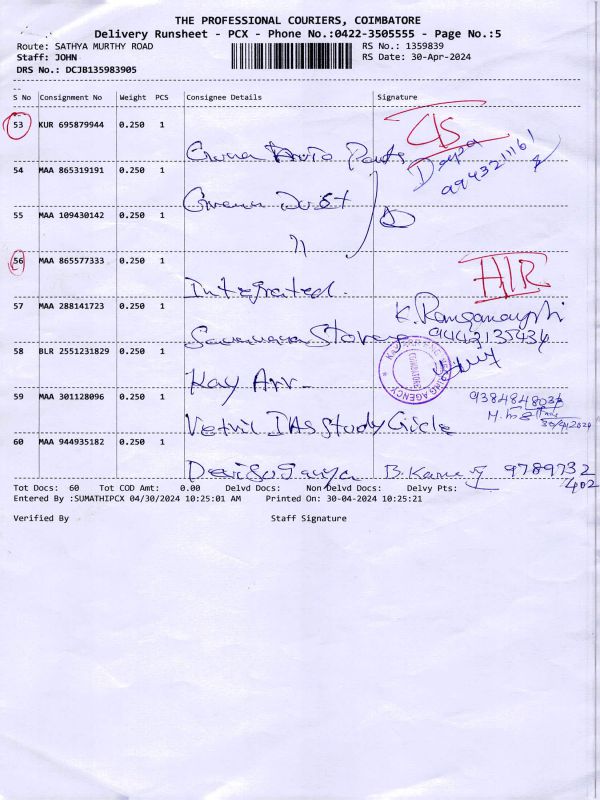 THE PROFESSIONAL COURIERS, COIMBATORE
Delivery Runsheet - PCX - Phone No.:0422-3505555 - Page No.:5
Route: SATHYA MURTHY ROAD RS No.: 1359839
Staff: JOHN RS Date: 30-Apr-2024
DRS No.: DCJB135983905
S No Consignment No Weight PCS Consignee Details Signature
53 KUR 695879944 0.250 1
CS
Deepa
9943211161
54 MAA 865319191 0.250 1
55 MAA 109430142 0.250 1
56 MAA 865577333 0.250 1
Integrated.
HIR
57 MAA 288141723 0.250 1
9442135434
58 BLR 2551231829 0.250 1
Kay Arr
COIMBATORE
59 MAA 301128096 0.250 1
IAS Study Circle
9384848038
30/4/2024
60 MAA 944935182 0.250 1
9789732
402
Tot Docs: 60 Tot COD Amt: 0.00 Delvd Docs: Non Delvd Docs: Delvy Pts:
Entered By :SUMATHIPCX 04/30/2024 10:25:01 AM Printed On: 30-04-2024 10:25:21
Verified By Staff Signature